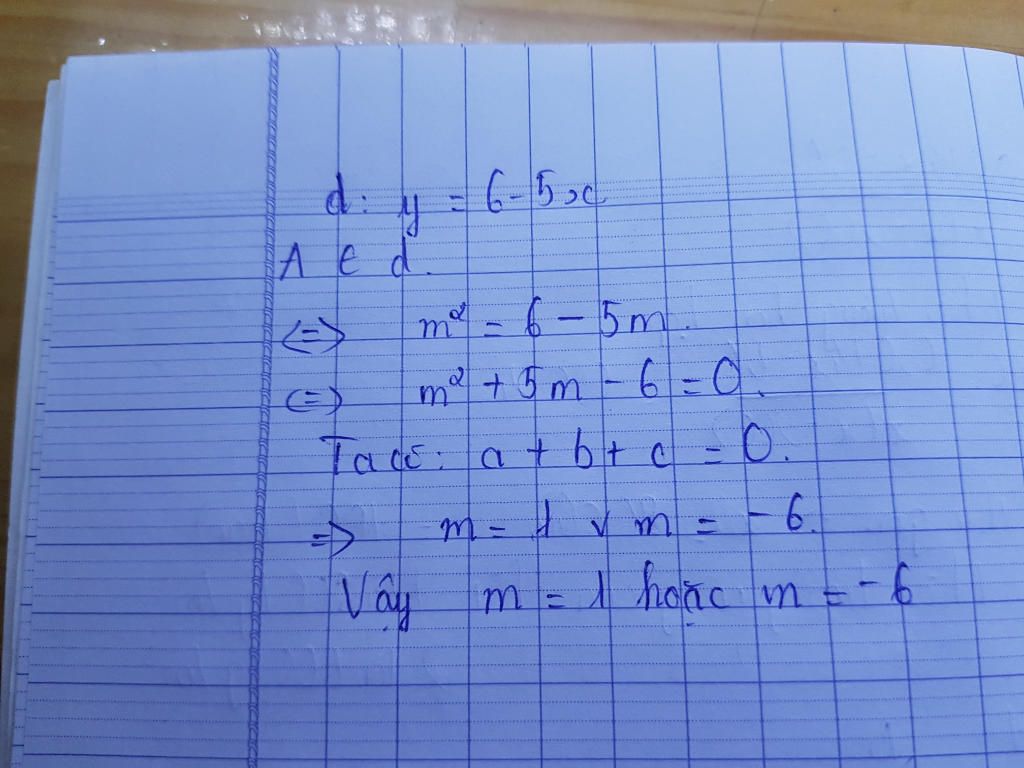 d: y = 6 - 5x
A ∈ d.
<=> m² = 6 - 5m.
<=> m² + 5m - 6 = 0.
Ta có: a + b + c = 0.
=> m = 1 v m = -6.
Vậy m = 1 hoặc m = -6